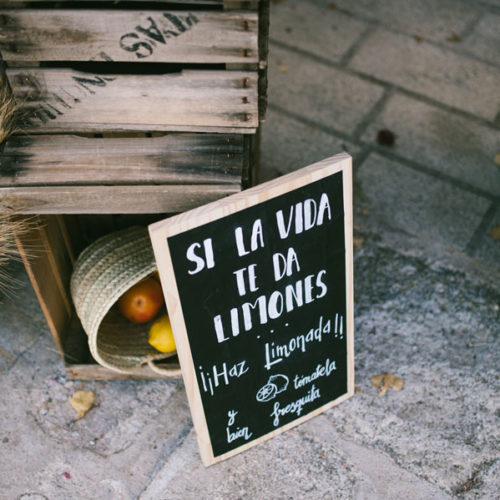 SI LA VIDA
TE DA
LIMONES...
¡¡Haz Limonada!!
tómatela
y bien fresquita